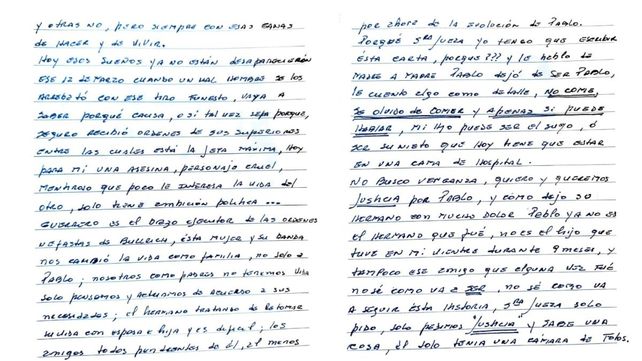 y otras no, pero siempre con esas ganas
de hacer y de vivir.
Hoy esos sueños ya no están desaparecieron
ese 12 de marzo cuando un mal hombre se los
arrebató con ese tiro funesto, vaya a
saber porqué causa, o si tal vez sepa porque,
seguro recibió ordenes de sus superiores
entre las cuales está la jefa máxima, hoy
para mi una asesina, personaje cruel,
mentiroso que poco le interesa la vida del
otro, solo tiene ambición política ...
Guerrero es el brazo ejecutor de las ordenes
nefastas de Bullrich, ésta mujer y su banda
nos cambió la vida como familia, no solo a
Pablo; nosotros como padres no tenemos vida
solo pensamos y actuamos de acuerdo a sus
necesidades; el hermano tratando de retomar
su vida con esposa e hija y es dificil; los
amigos todos pendientes de él, al menos
por ahora de la evolución de Pablo.
Porqué Sra jueza yo tengo que escribir
ésta carta, porque??? y le hablo de
madre a madre Pablo dejó de ser Pablo,
le cuento algo como detalle, no come,
se olvido de comer y apenas si puede
hablar, mi hijo puede ser el suyo, ó
ser su nieto que hoy tiene que estar
en una cama de hospital.
No busco venganza, quiero y queremos
justicia por Pablo, y como dijo su
hermano con mucho dolor Pablo ya no es
el hermano que fué, no es el hijo que
tuve en mi vientre durante 9 meses, y
tampoco ese amigo que alguna vez fué
no sé como va a ser, no sé como va
a seguir ésta historia, Sra jueza solo
pido, solo pedimos "justicia" y sabe una
cosa, él solo tenia una cámara de fotos.